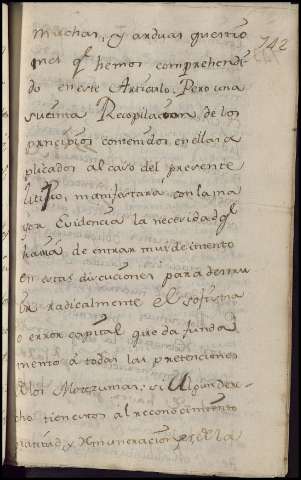 muchas, y arduas questio
742
nes q.e hemos comprehendi
do en este Articulo. Pero una
sucinta Recopilacion de los
principios contenidos en ella a
plicados al caso del presente
litigio, manifestará con la ma
yor Evidencia la necesidad q.e
havia de entrar
en estas discusiones para destru
ir radicalmente el sofisma
o error capital que da funda
mento á todas las pretenciones
de los Motezumas; si algun dere
cho tien estos al reconocimiento
gratitud, y remuneracion